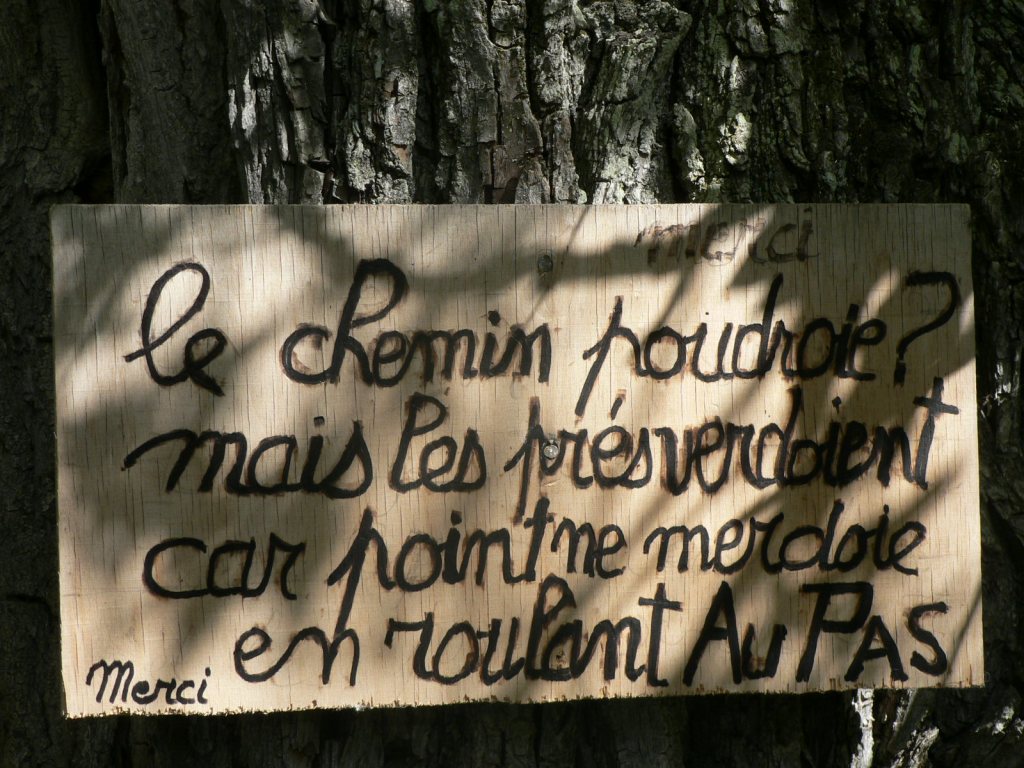 merci
le chemin poudroie ?
mais les prés verdoient
car point ne merdoie
en roulant AU PAS
Merci